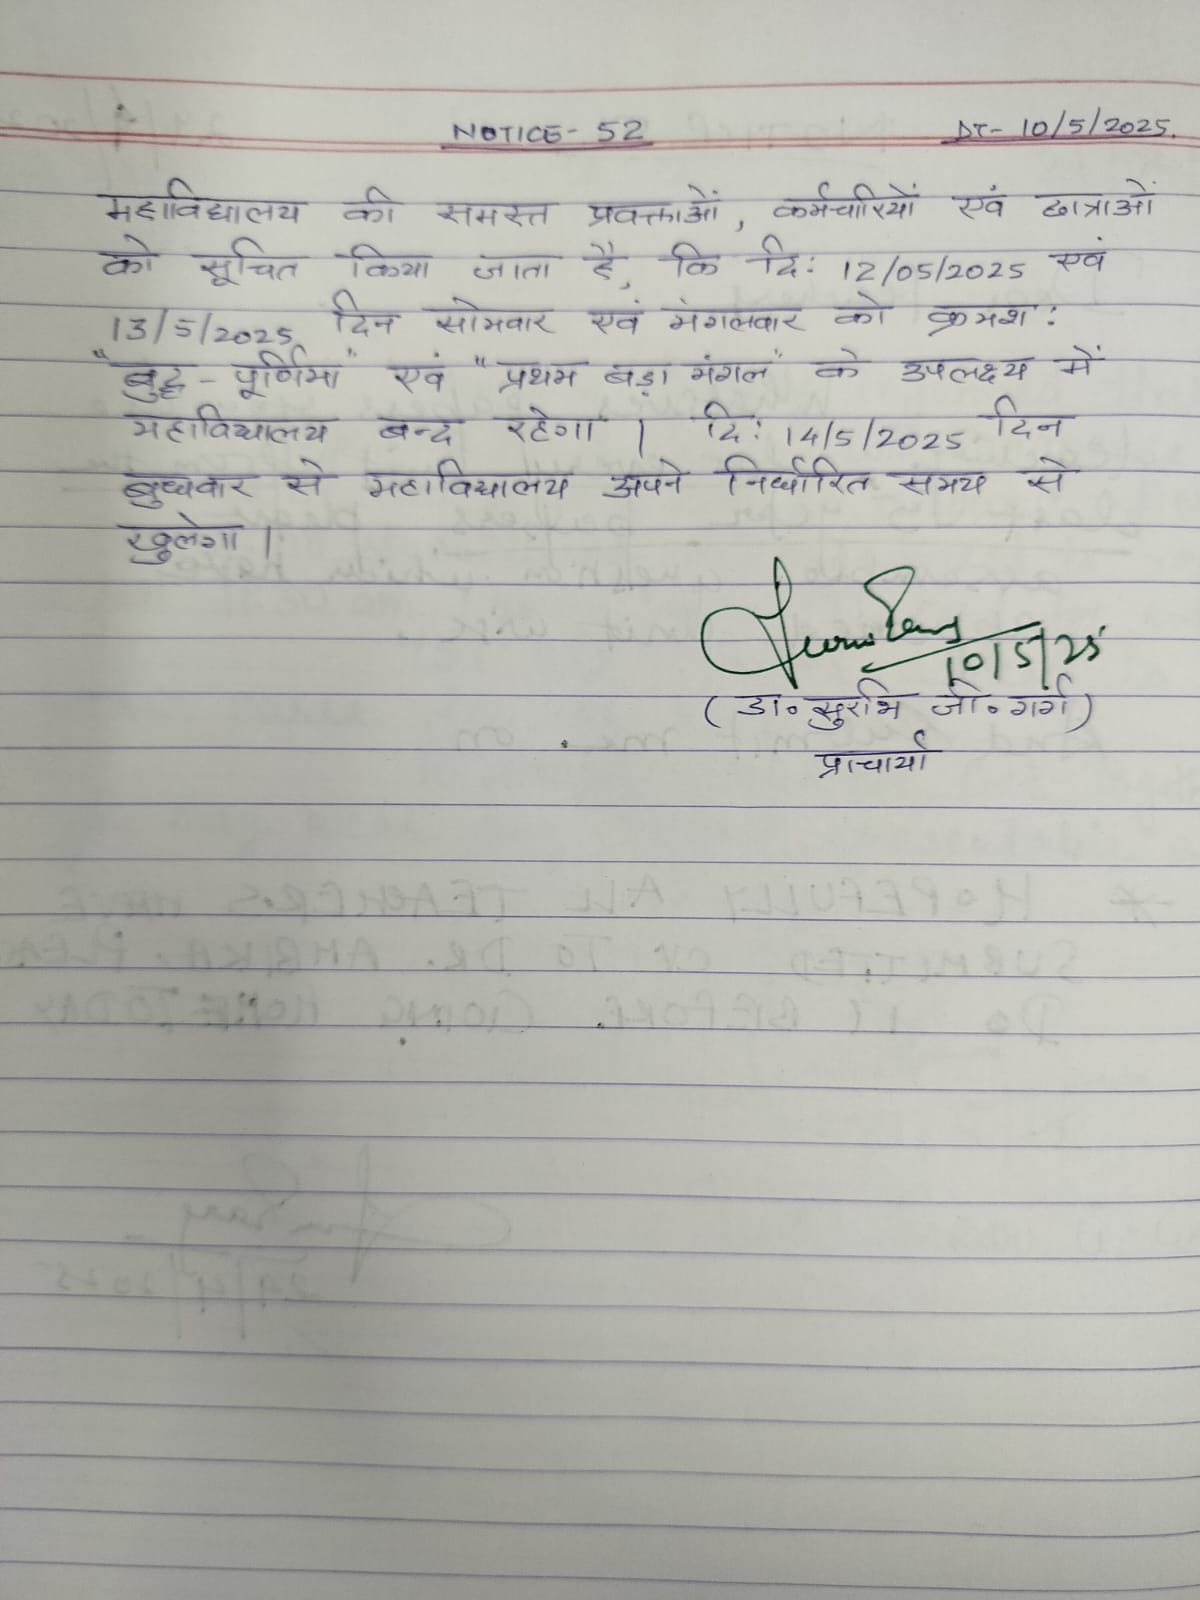 NOTICE - 52 DT- 10/5/2025.
महाविद्यालय की समस्त प्रवक्ताओं, कर्मचारियों एवं छात्राओं
को सूचित किया जाता है, कि दि: 12/05/2025 एवं
13/5/2025 दिन सोमवार एवं मंगलवार को क्रमश:
"बुद्ध - पूर्णिमा" एवं "प्रथम बड़ा मंगल" के उपलक्ष्य में
महाविद्यालय बन्द रहेगा। दि: 14/5/2025 दिन
बुधवार से महाविद्यालय अपने निर्धारित समय से
खुलेगा।
10/5/25
(डा॰ सुरभि जी॰ गर्ग)
प्राचार्या